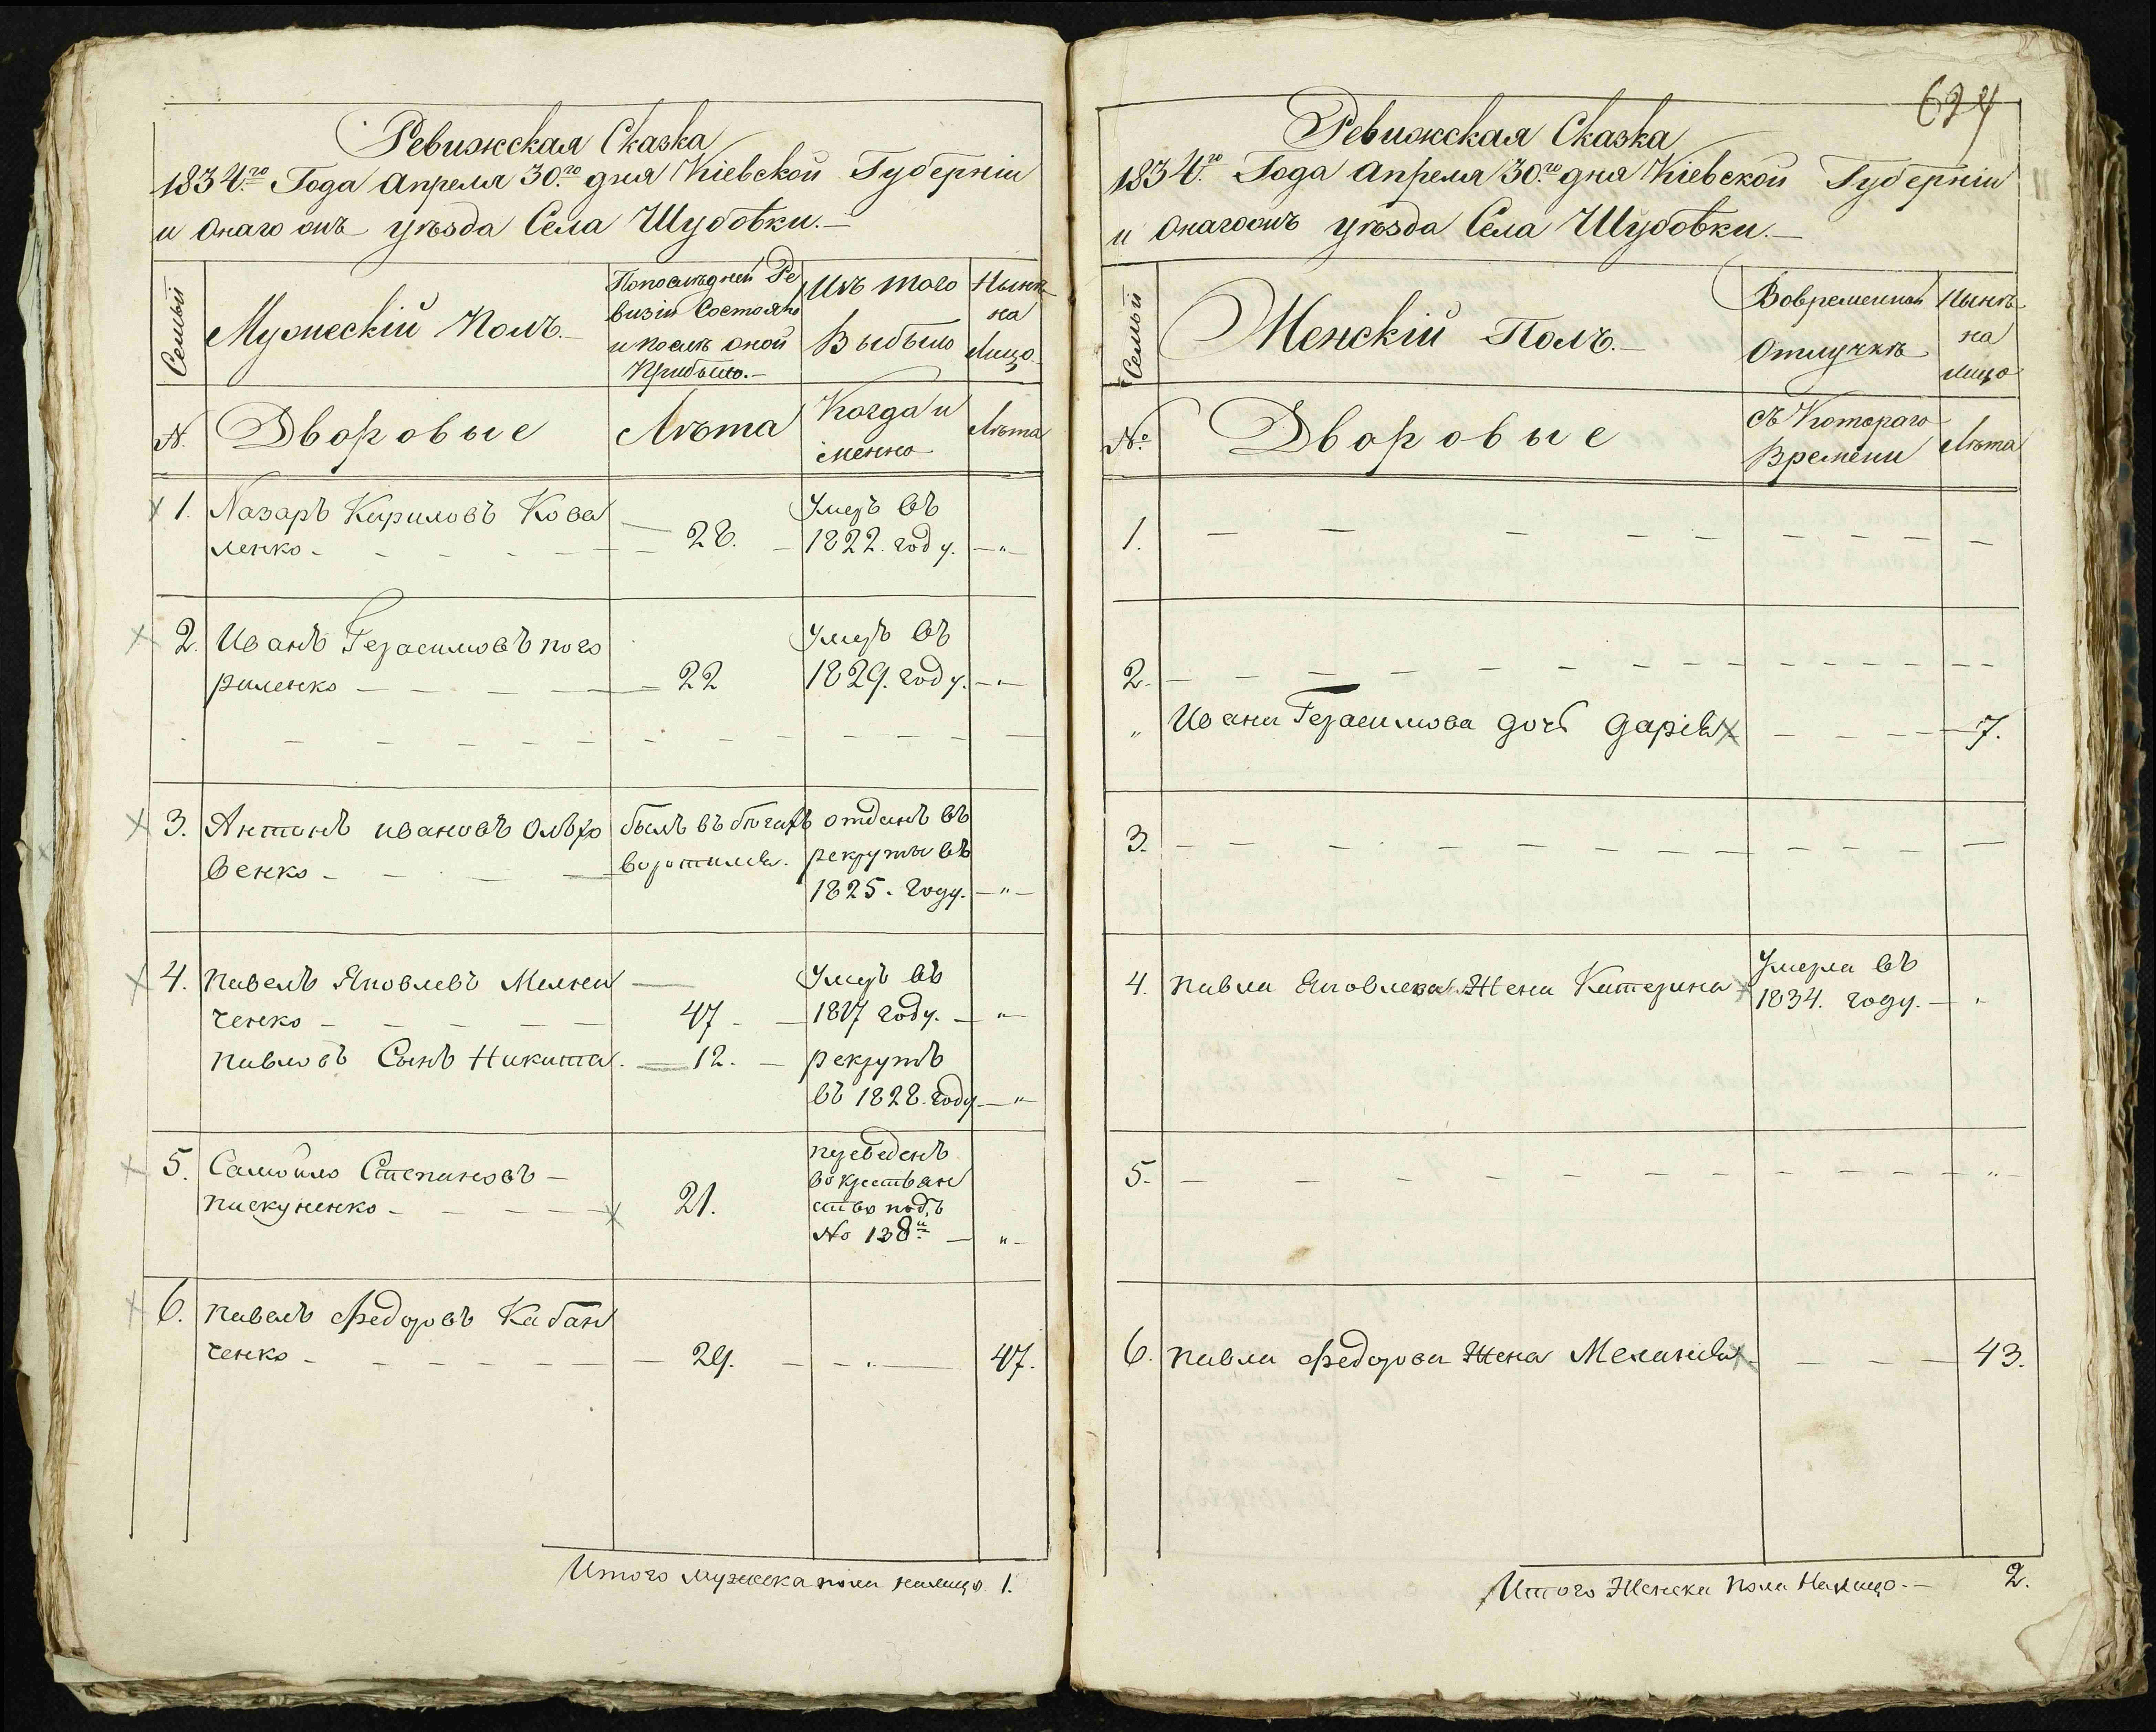 Ревижская Сказка
1834.го Года Апреля 30.го дня Кіевской Губерніи
и Онаго онъ уѣзда Села Шубовки.—
Семьи
Мужескій Полъ.
По послѣдней Ре
визіи Состояло
и послѣ оной
Прибыло.—
Изъ того
Выбыло
Нынѣ
на
Лицо
№.
Дворовые
Лѣта
Когда и
іменно
Лѣта
1. Назаръ Кириловъ Кова
ленко - 28.
Умеръ въ
1822. году. — " —
2. Иванъ Герасимовъ пого
риленко — 22
Умеръ въ
1829. году. — " —
3. Антонъ ивановъ Олѣхо
венко -
былъ въ бѣгахъ
воротился.
отданъ въ
рекруты въ
1825. году. — " —
4. павелъ Яковлевъ Мелни
ченко — 47 -
Умеръ въ
1817 году. — " —
павловъ Сынъ Никита. — 12. —
рекрутъ
въ 1828. году — " —
5. Самойло Степановъ —
пискуненко - 21.
переведенъ
въ крестьян
ство подъ
No 138.м — " -
6. павелъ Федоровъ Кабан
ченко — 29. — " — 47.
Итого мужеска пола налицо 1.
624
Ревижская Сказка
1834.го Года Апреля 30.го дня Кіевской Губерніи
и Онагоонъ уѣзда Села Шубовки.—
Семьи
Женскій Полъ.—
Вовременной
Отлучкѣ
Нынѣ
на
лицо
№.
Дворовые
съ Котораго
Времени
Лѣта
1.
2.
" Ивана Герасимова дочь дарія — 7.
3.
4. павла Яковлева Жена Катерина
Умерла въ
1834. году. — "
5. — " -
6. павла Федорова Жена Меланія — 43.
Итого Женска пола Налицо.— 2.